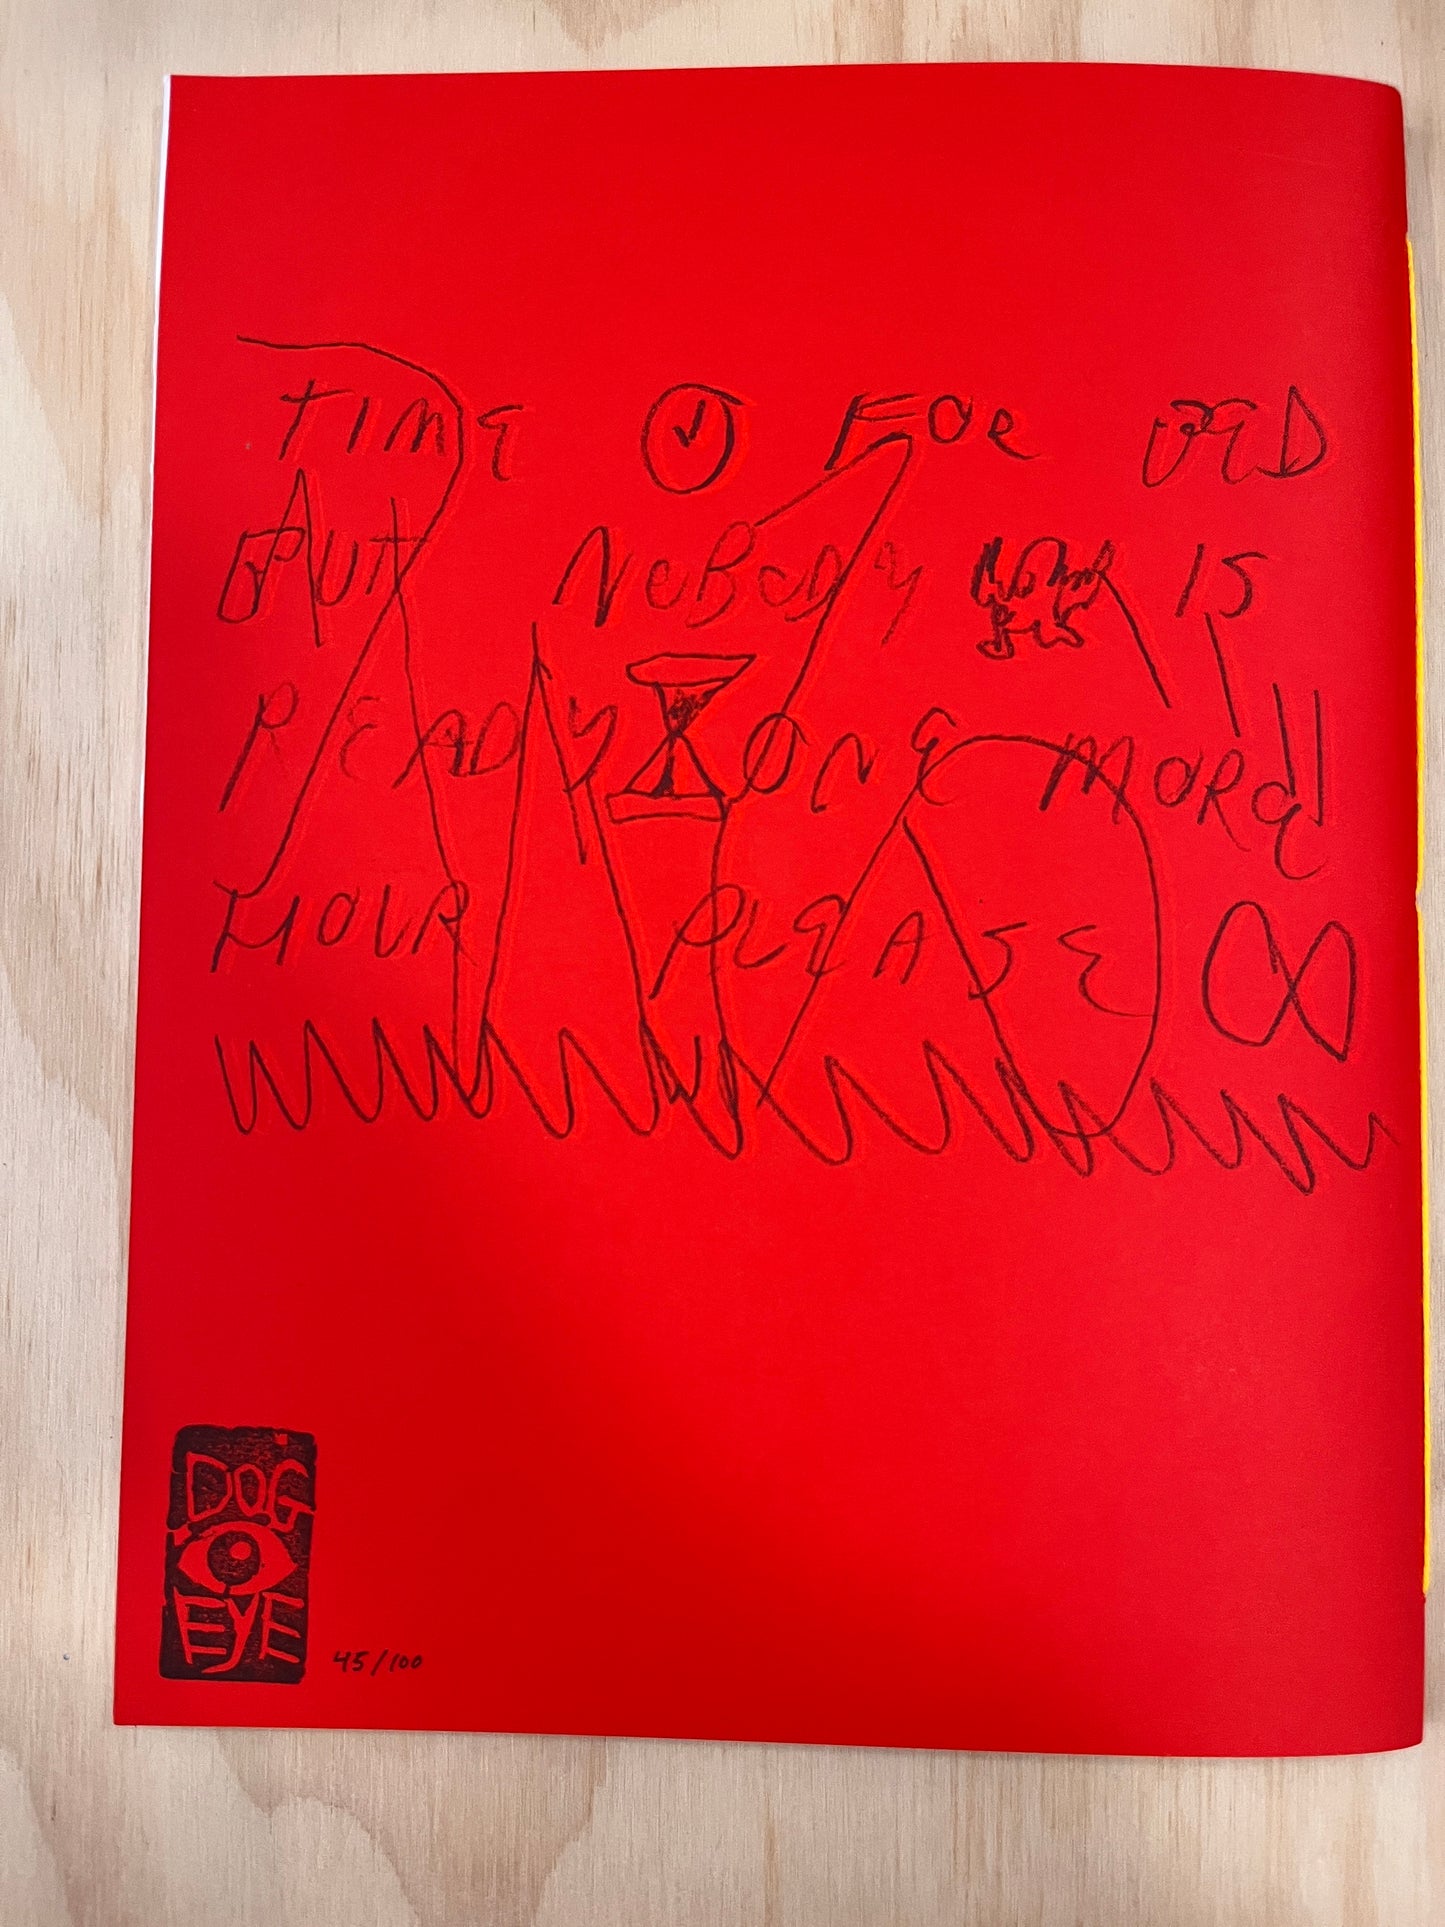 TIME FOR BED
BUT NOBODY IS
READY ONE MORE
HOUR PLEASE
DOG
EYE
45/100